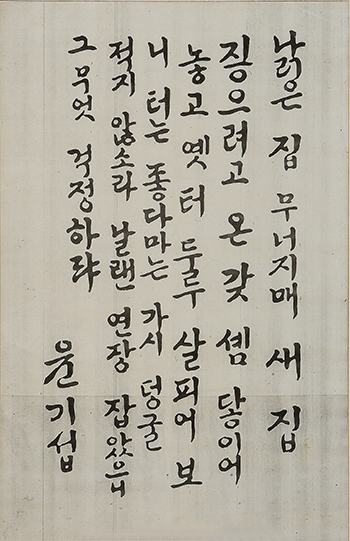 낡은 집 무너지매 새 집
징으려고 온갖 셈 닿이어
놓고 옛 터 둘루 살피어 보
니 터는 좋다마는 가시 덩굴
적지 않소라 날랜 연장 잡았으니
그 무엇 걱정하랴
윤기섭